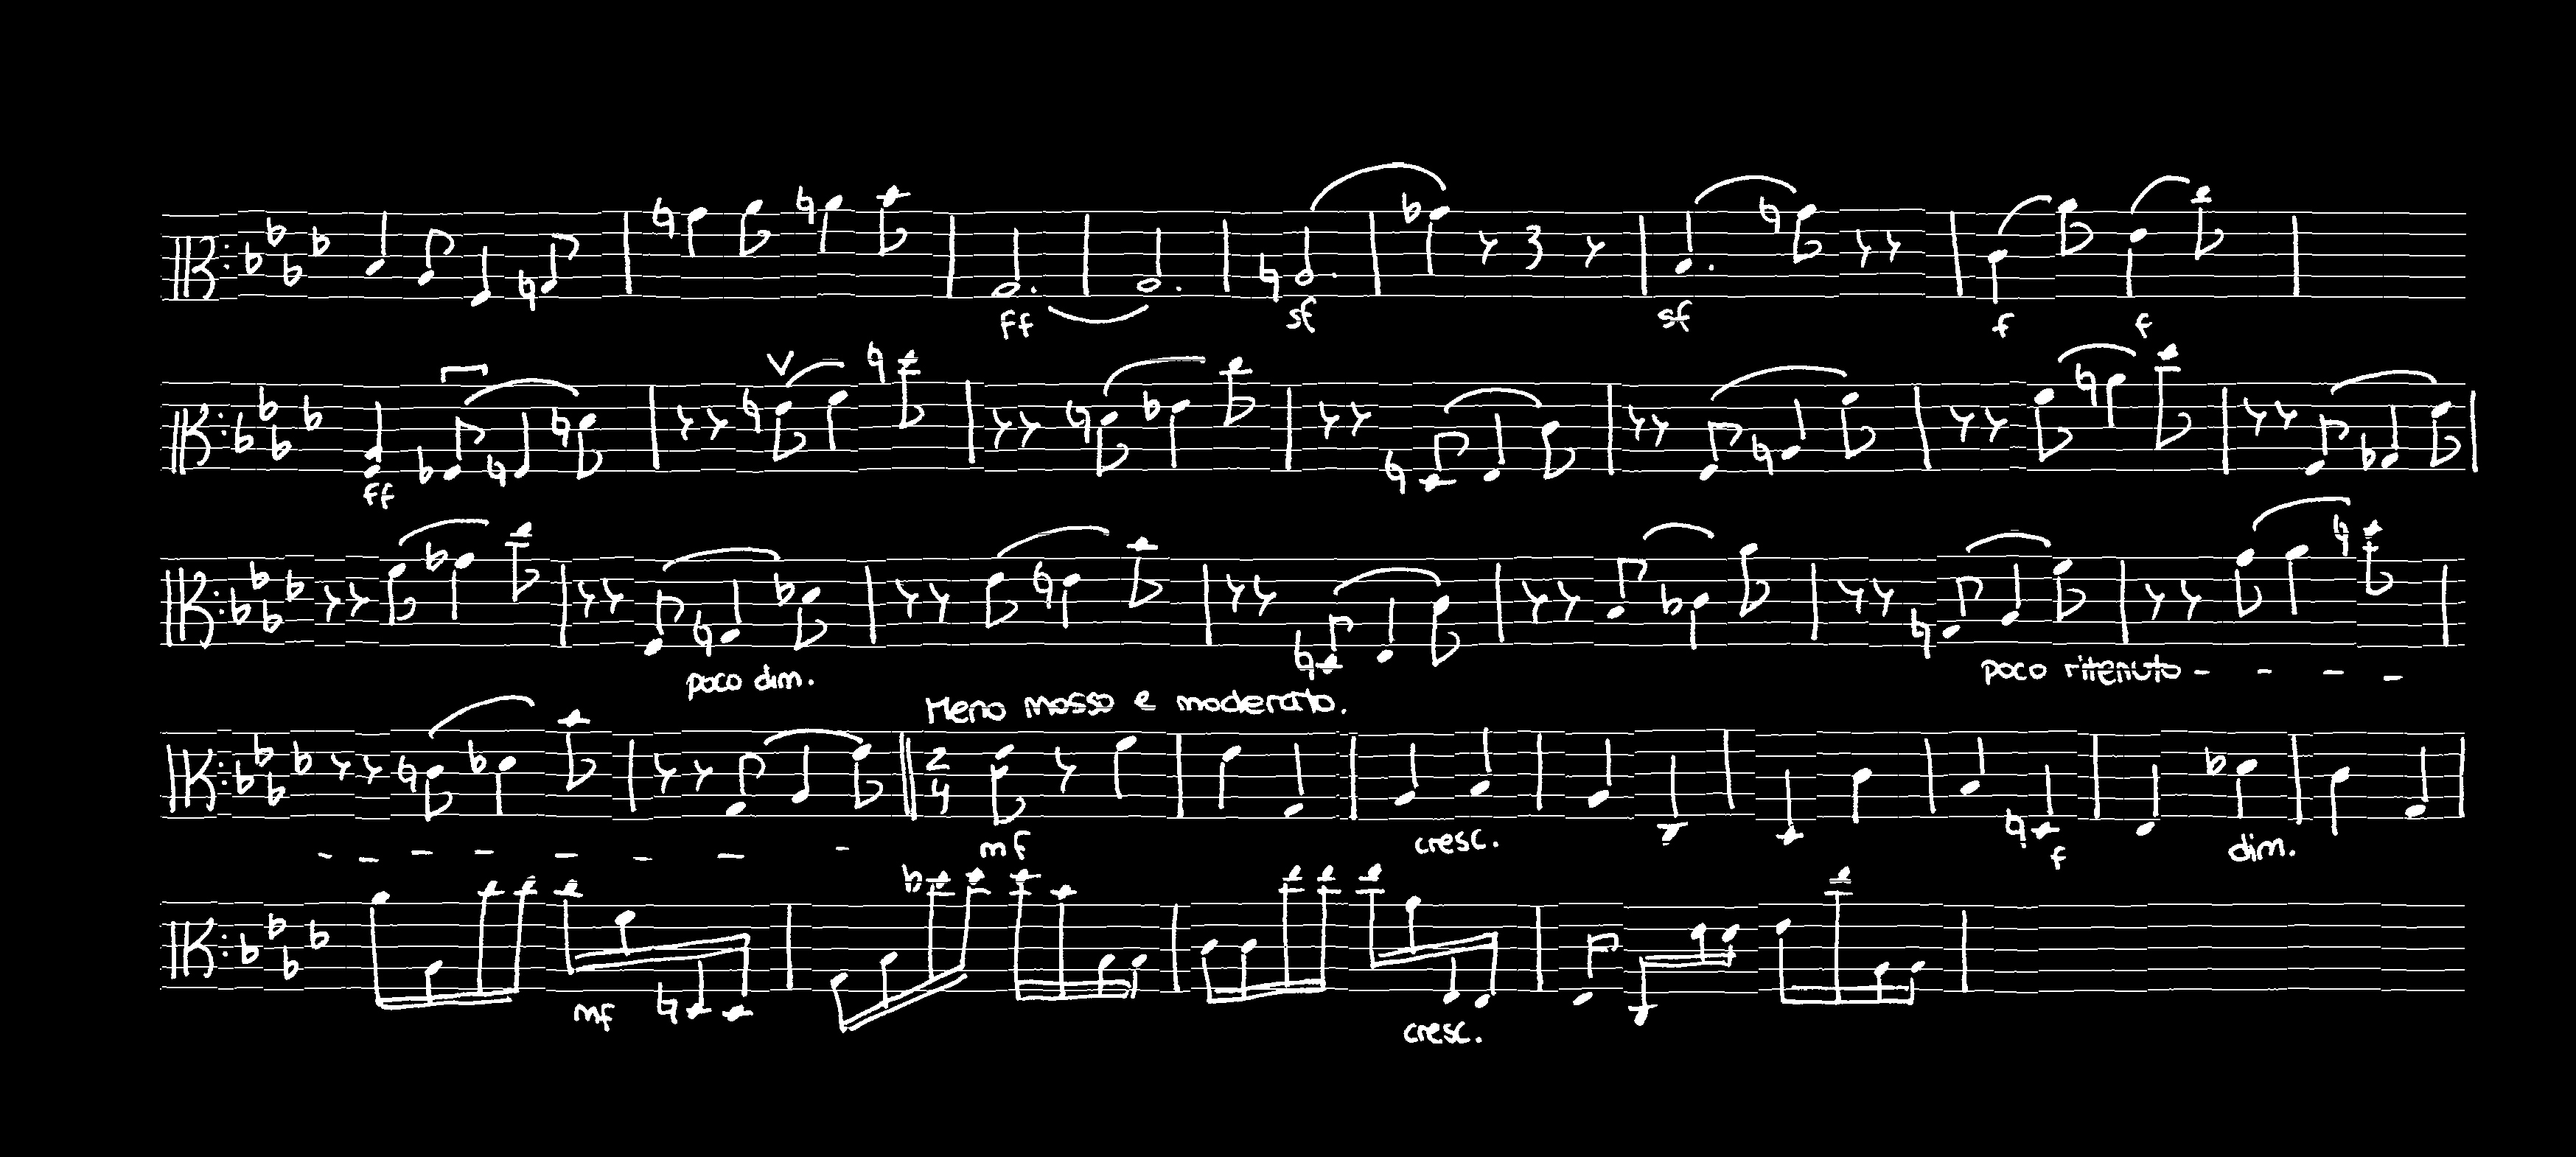 ff sf sf f f
ff
poco dim. poco ritenuto - - - -
Meno mosso e moderato.
2 4
- - - - - - - - mf cresc. f dim.
mf cresc.